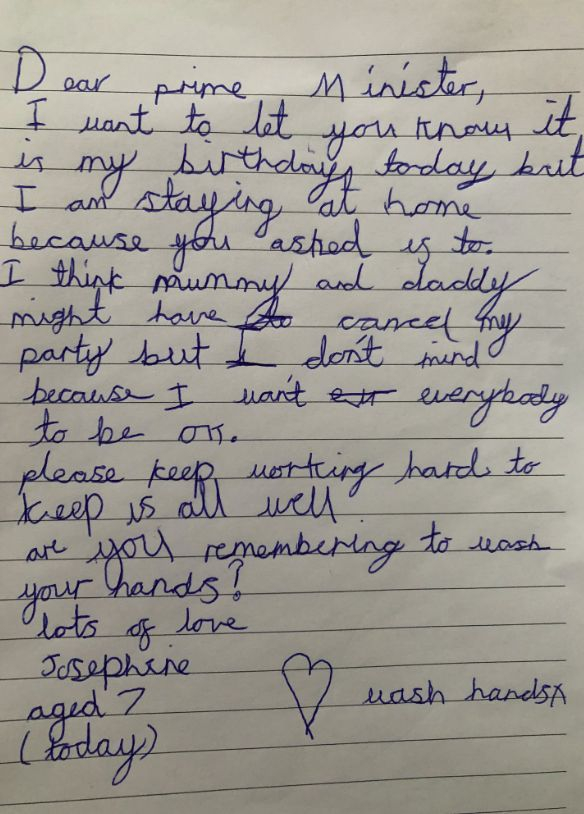 Dear prime Minister,
I want to let you know it
is my birthday today but
I am staying at home
because you asked us to.
I think mummy and daddy
might have to cancel my
party but I don't mind
because I want eur everybody
to be ok.
please keep working hard to
keep us all well
are you remembering to wash
your hands?
lots of love
Josephine
aged 7
wash hands x
(today)